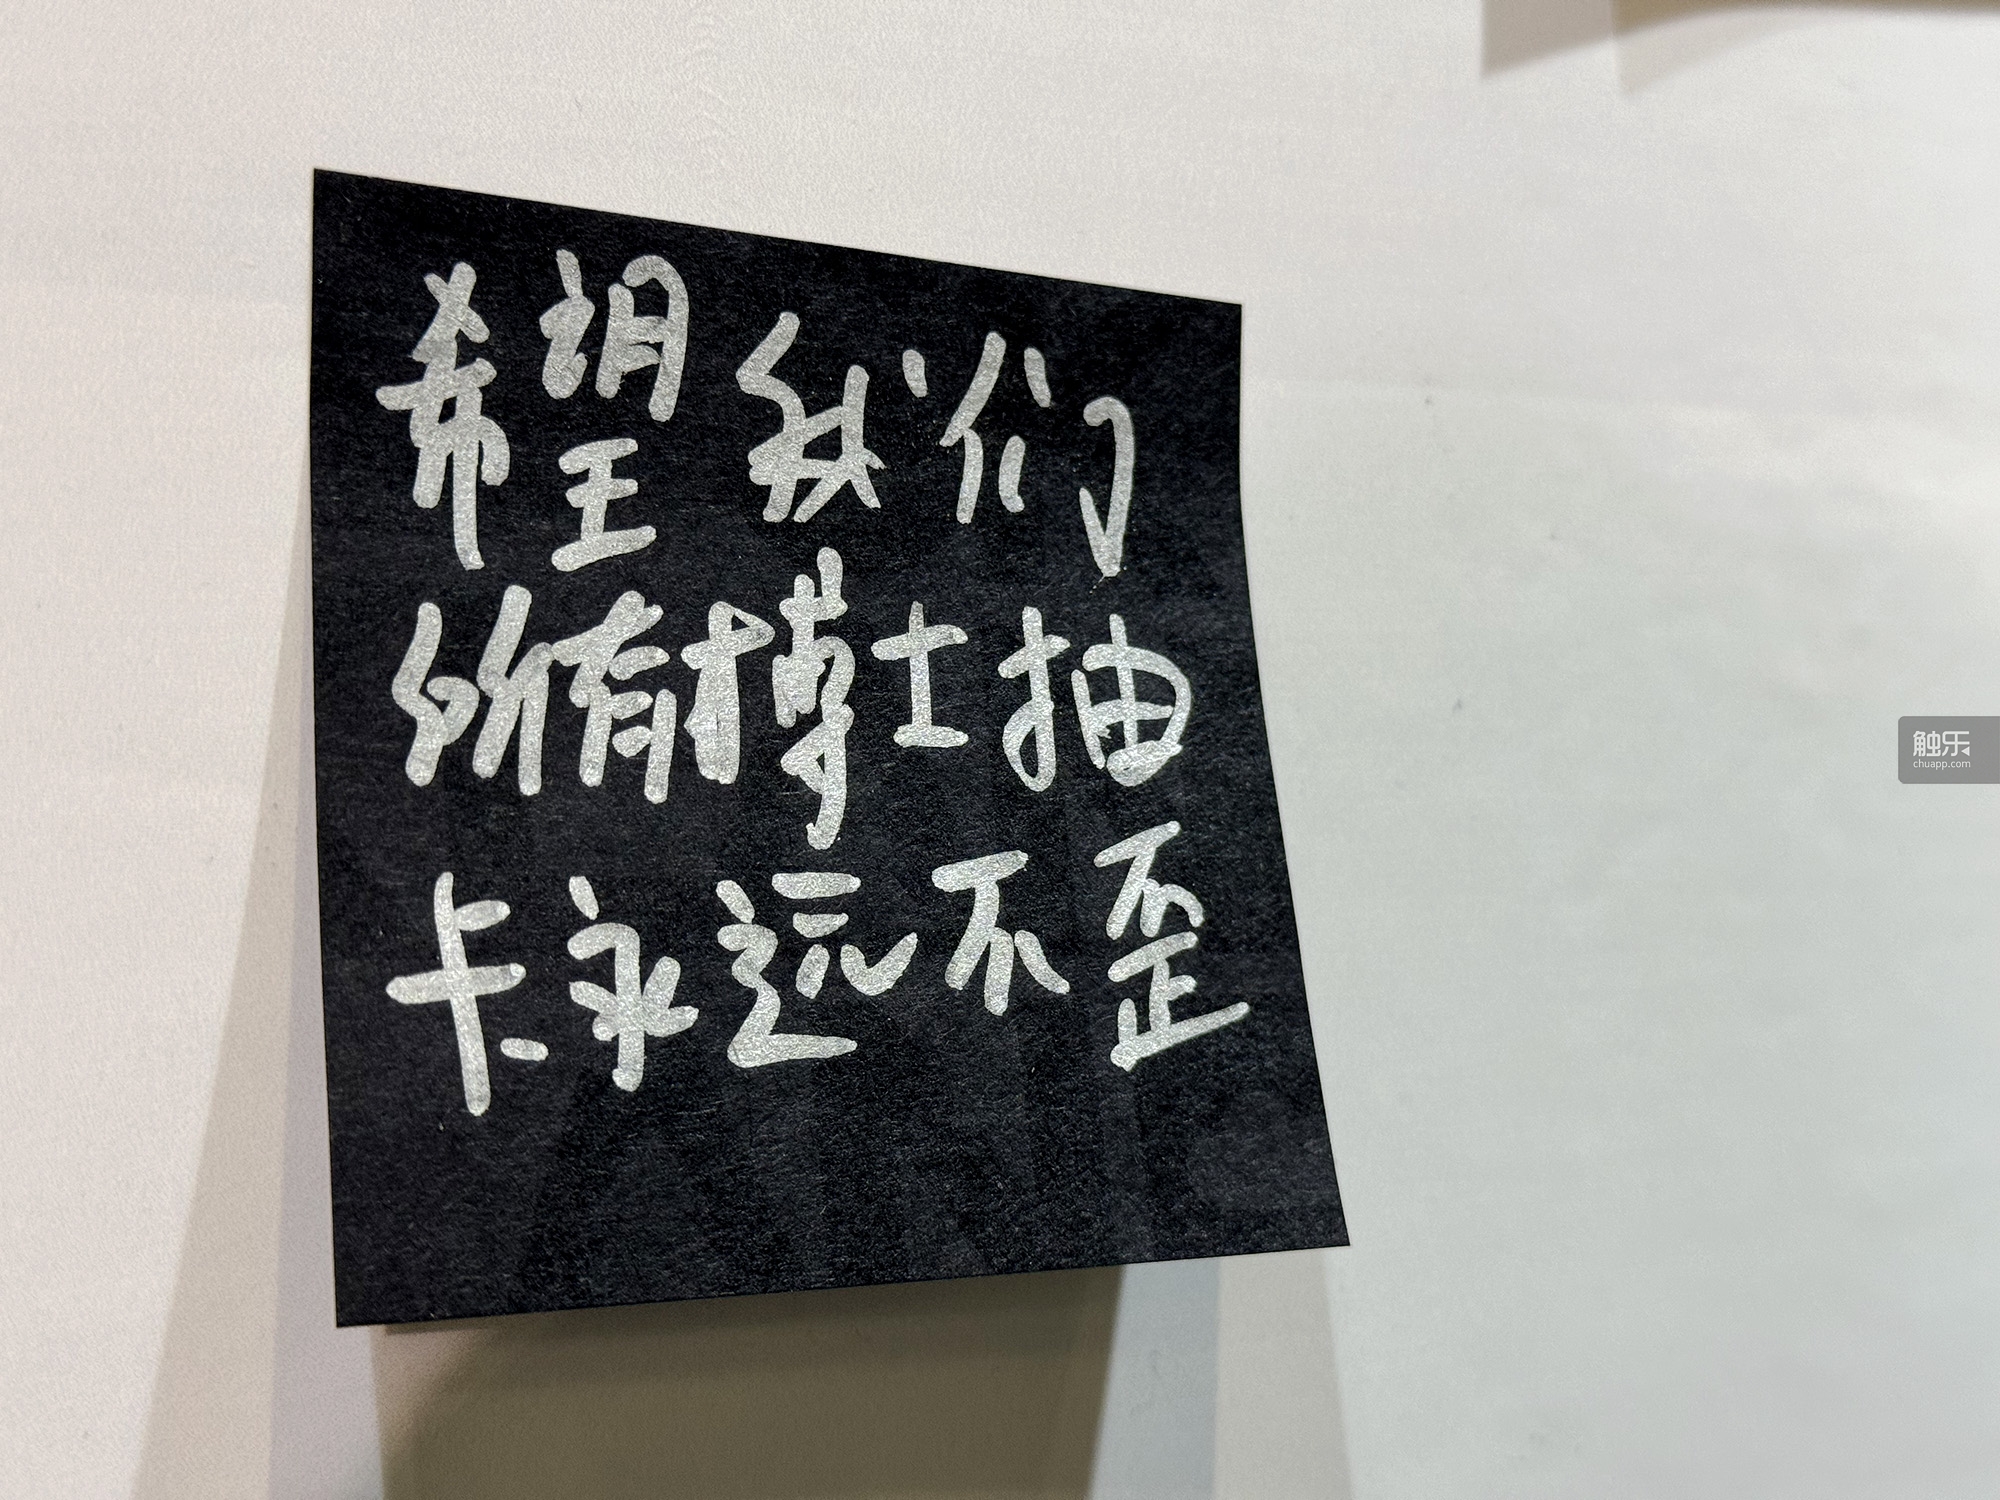 希望我们
所有博士抽
卡永远不歪
触乐
chuapp.com